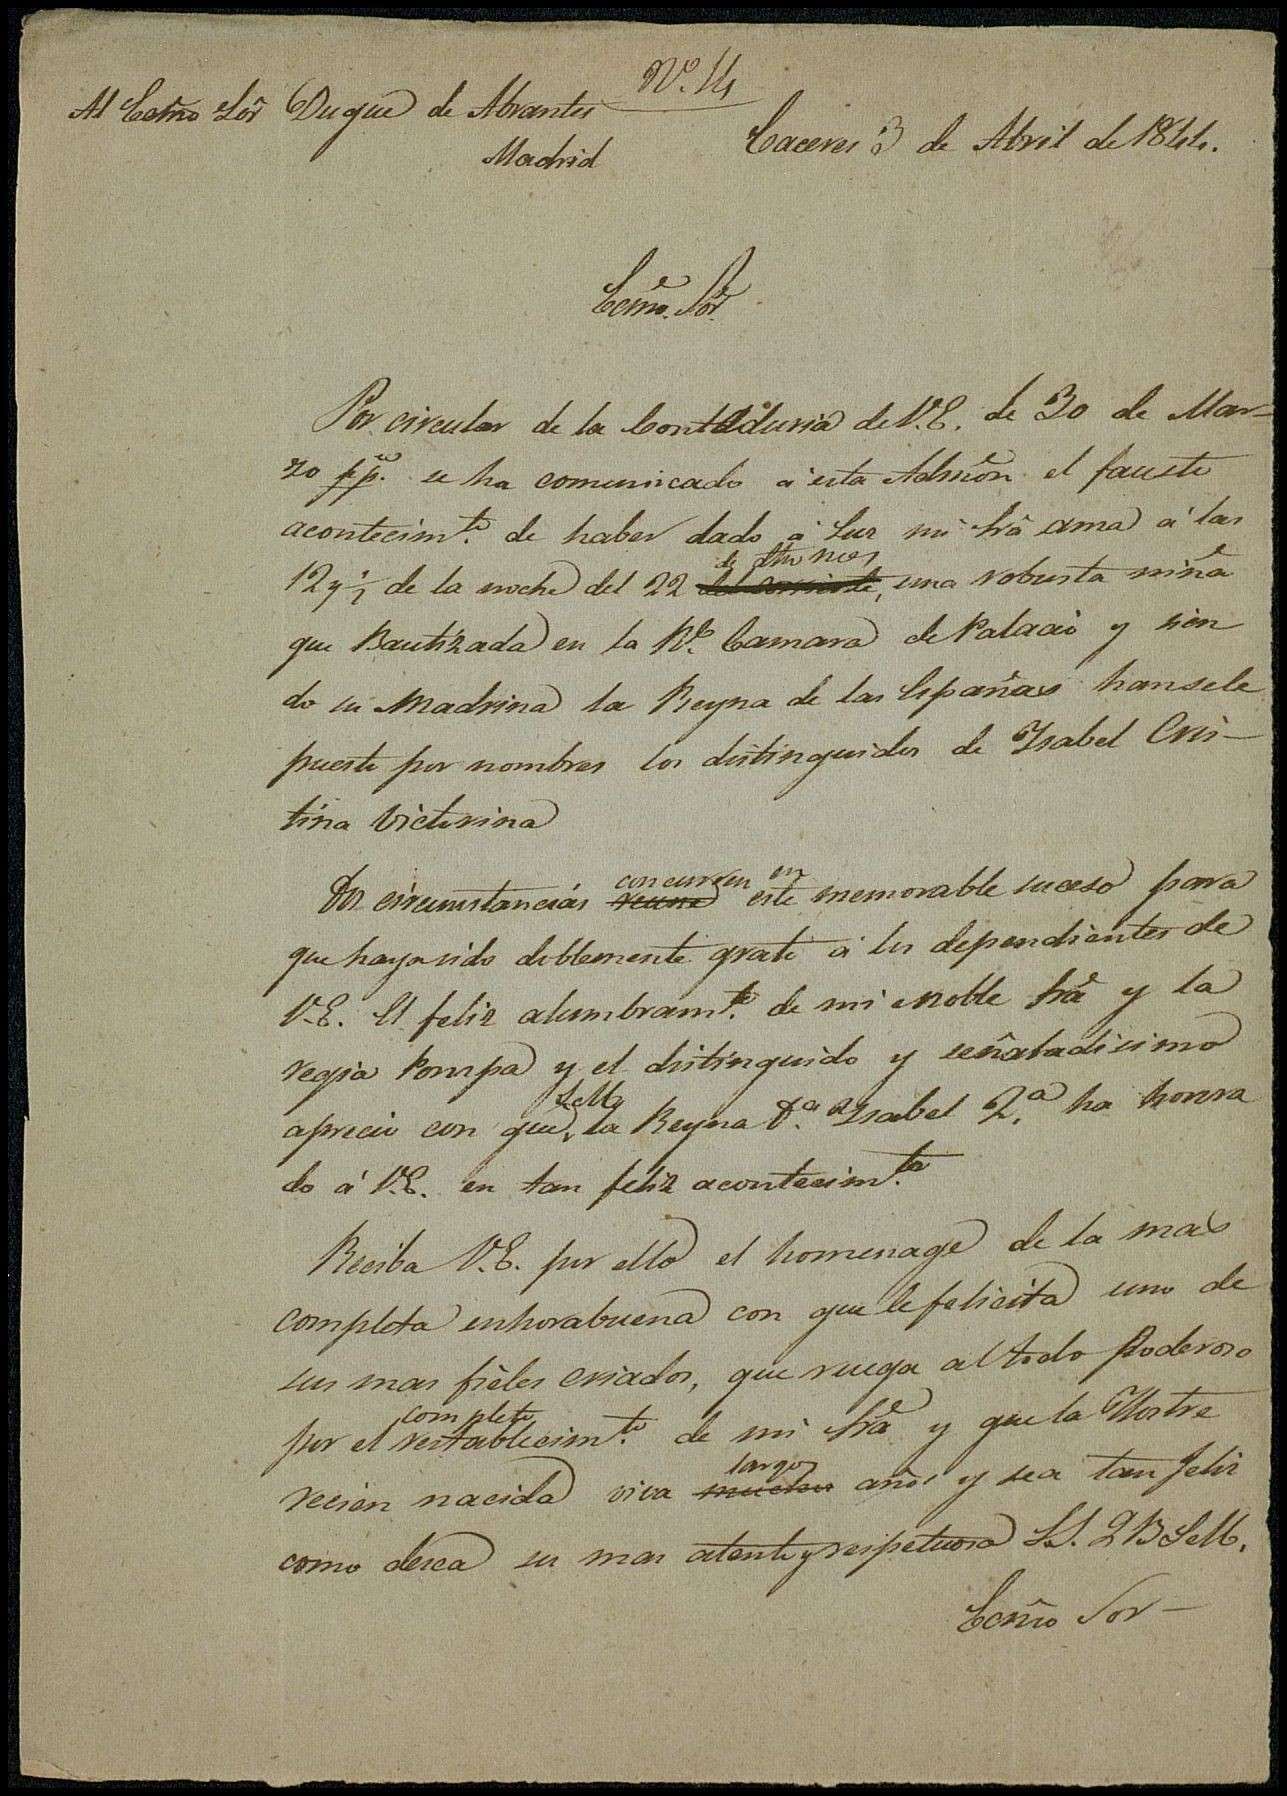 Nº. 14
Al Ecm̃o Sõr Duque de Abrantes
Madrid
Caceres 3 de Abril de 1844.
Ecm̃o. Sõr.
Por circular de la Contaduria de V.E. de 30 de Mar-
zo pp.º se ha comunicado á esta Admõn el fausto
acontecim.to de haber dado á luz mi Srã ama á las
12 y ½ de la noche del 22 ~~del corriente~~ de dho mes, una robusta niña
que Bautizada en la R.l Camara de Palacio y sien
do su Madrina la Reyna de las Españas hansele
puesto por nombres los distinguidos de Ysabel Cris-
tina Victorina
Dos circunstancias ~~reune~~ concurren en este memorable suceso para
que haya sido doblemente grato á los dependientes de
V.E. El feliz alumbram.to de mi noble Srã y la
regia pompa y el distinguido y señaladisimo
aprecio con que S.M. la Reyna D.ª Ysabel 2.ª ha honra
do á V.E. en tan feliz acontecim.to
Reciba V.E. por ello el homenage de la mas
completa enhorabuena con que le felicita uno de
sus mas fieles criados, que ruega al todo Poderoso
por el completo restablecim.to de mi Srã y que la Ylustre
recien nacida viva ~~muchos~~ largos años y sea tan feliz
como desea su mas atento y respetuoso S.S. Q B S M.
Ecm̃o Sor-